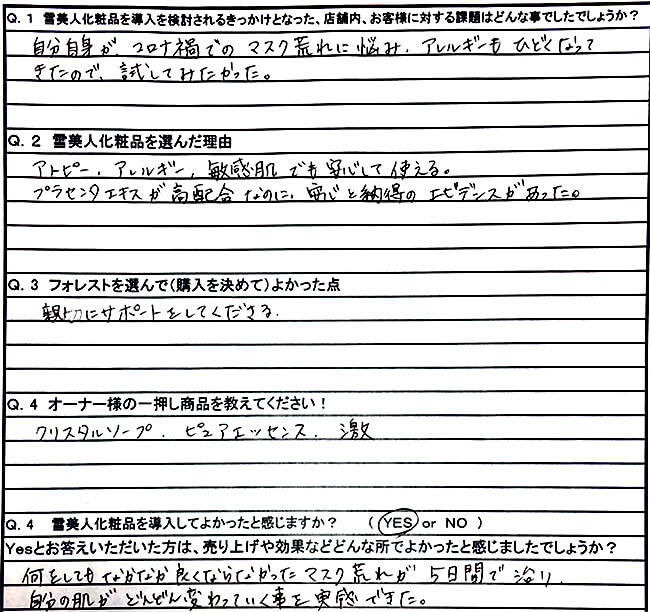 Q. 1 雪美人化粧品を導入を検討されるきっかけとなった、店舗内、お客様に対する課題はどんな事でしたでしょうか？
自分自身が コロナ禍での マスク荒れに悩み、アレルギーも ひどくなって
きたので、試してみたかった。
Q. 2 雪美人化粧品を選んだ理由
アトピー、アレルギー、敏感肌でも安心して使える。
プラセンタエキスが高配合なのに、安心と納得のエビデンスがあった。
Q. 3 フォレストを選んで（購入を決めて）よかった点
親切にサポートをしてくださる.
Q. 4 オーナー様の一押し商品を教えてください！
クリスタルソープ. ピュアエッセンス. 激
Q. 4 雪美人化粧品を導入してよかったと感じますか？ （ YES or NO ）
Yesとお答えいただいた方は、売り上げや効果などどんな所でよかったと感じましたでしょうか？
何をしてもなかなか良くならなかったマスク荒れが 5日間で治り、
自分の肌が どんどん変わっていく事を実感できた。